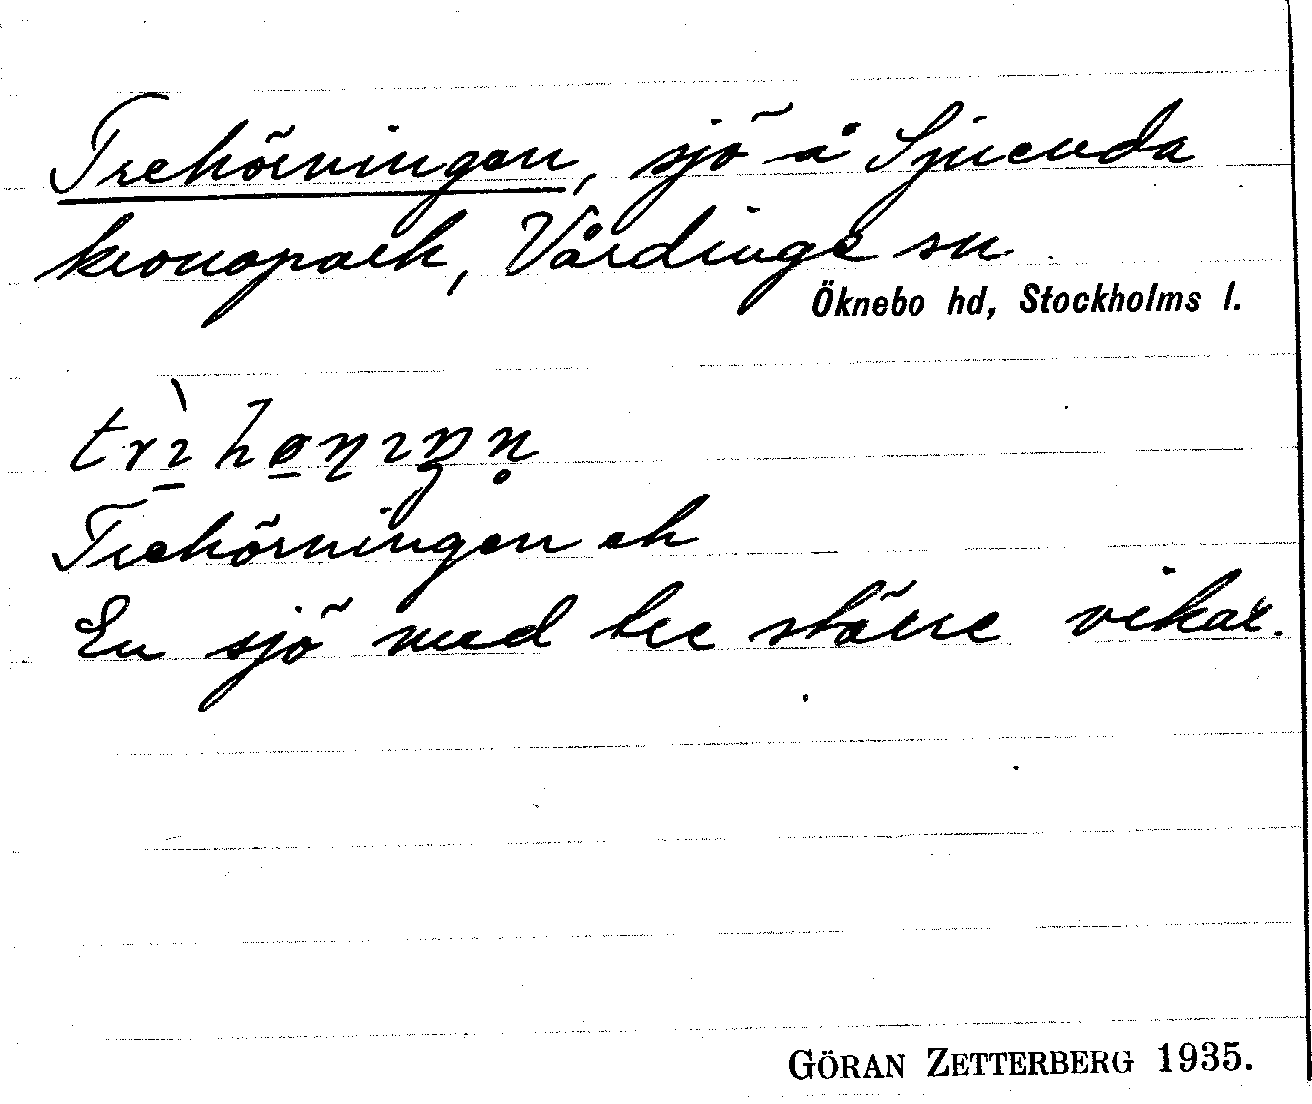 Trehörningen, sjö å Sjuenda
kronopark, Vårdinge sn
Öknebo hd, Stockholms l.
trı̱̀hø̱ɳıŋn̥
Trehörningen ek
En sjö med tre större vikar.
GÖRAN ZETTERBERG 1935.